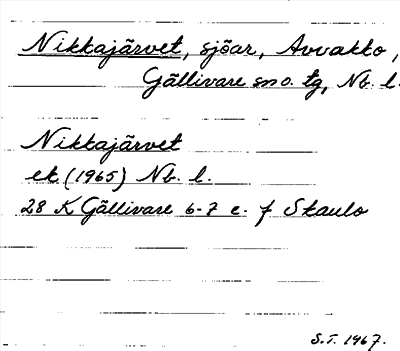 Nikkajärvet, sjöar, Avvakko,
Gällivare sn o. tg, Nb. l.
Nikkajärvet
ek (1965) Nb. l.
28 K Gällivare 6-7 e. f Skaulo
S.T. 1967.